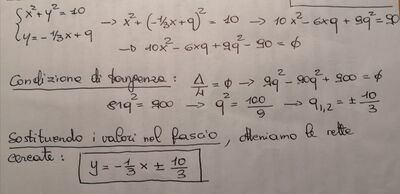 { x²+y²=10 → x²+(-1/3x+q)² = 10 → 10x²-6xq+9q²=90
y=-1/3x+q
→ 10x²-6xq+9q²-90=ϕ
Condizione di tangenza : Δ/4 = ϕ → 9q²-90q²+900=ϕ
81q²=900 → q²=100/9 → q₁,₂=±10/3
Sostituendo i valori nel fascio, otteniamo le rette
cercate : y=-1/3x±10/3